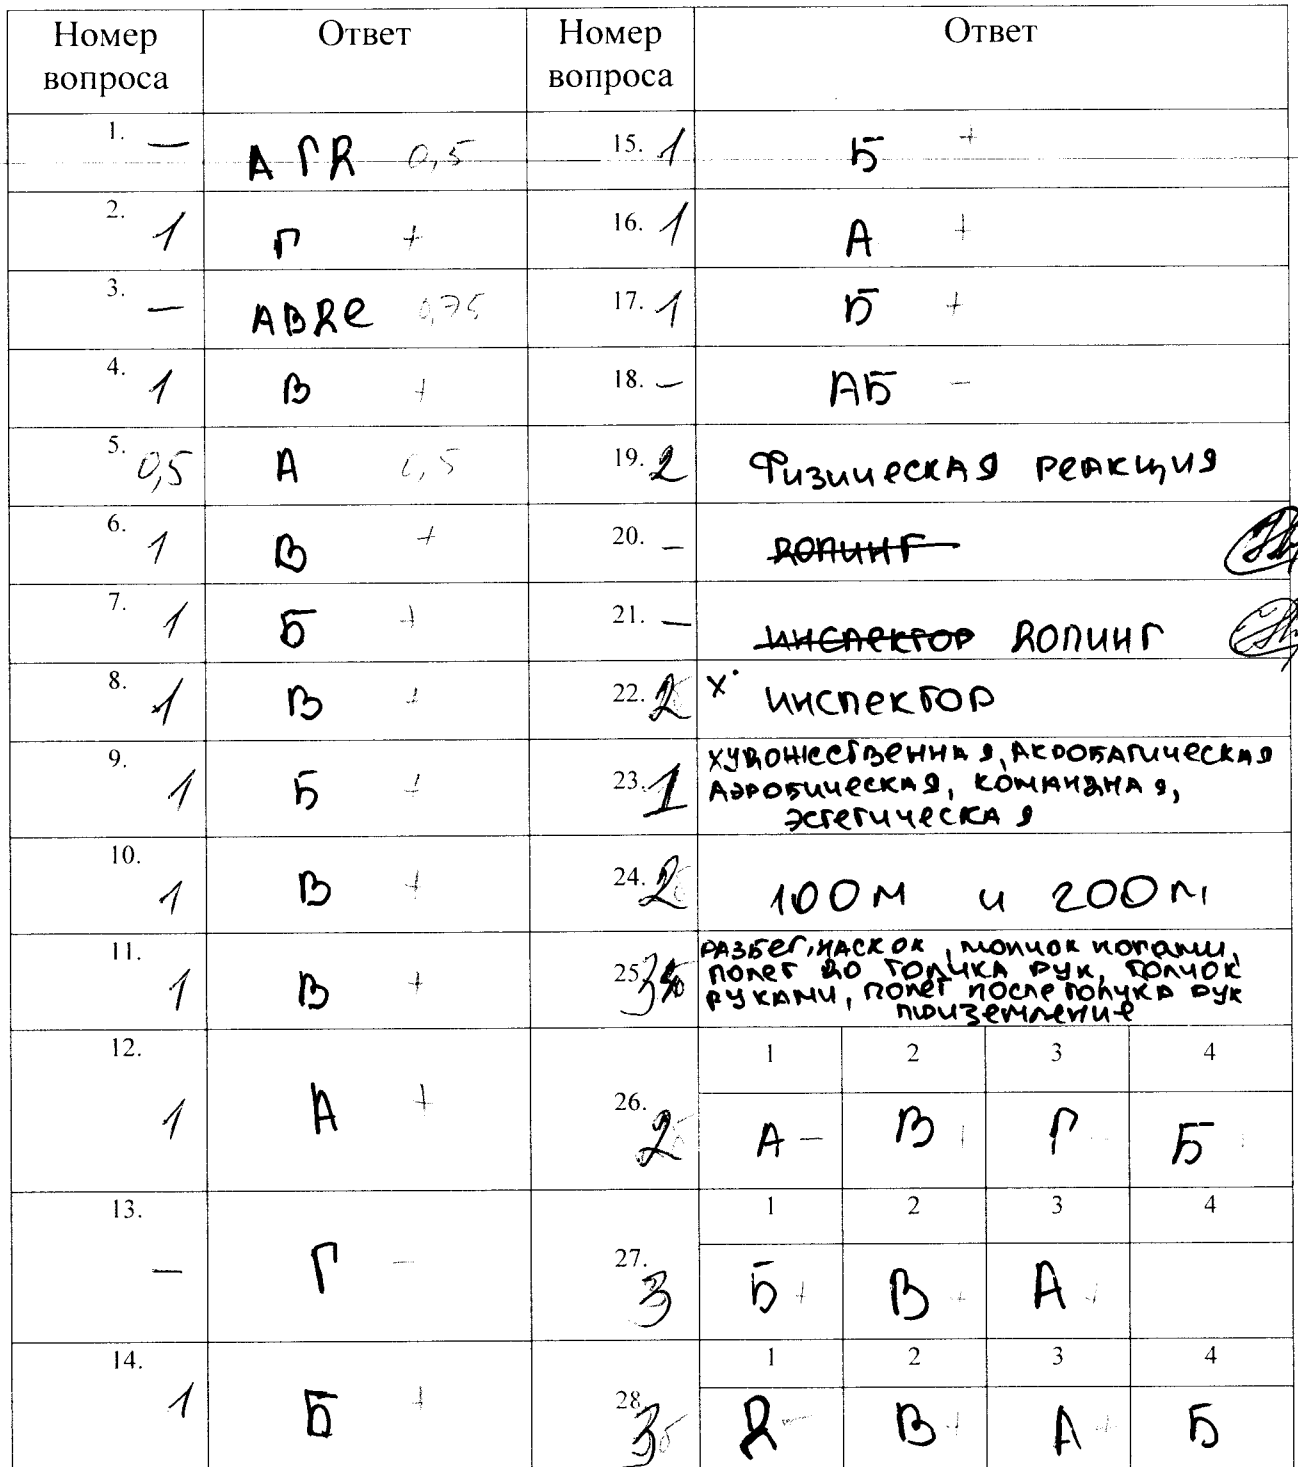 Номер вопроса Ответ Номер вопроса Ответ
1. — АГД 0,5 15. 1 Б +
2. 1 Г + 16. 1 А +
3. — АВДЕ 0,75 17. 1 Б +
4. 1 В + 18. — АБ —
5. 0,5 А 0,5 19. 2 Физическая реакция
6. 1 В + 20. — допинг
7. 1 Б + 21. — инспектор допинг
8. 1 В + 22. 2 х инспектор
9. 1 Б + 23. 1 художественная, акробатическая
аэробическая, командная,
эстетическая
10. 1 В + 24. 2 100м и 200м
11. 1 В + 25. 3 разбег, наскок, толчок ногами,
полет до толчка рук, толчок
руками, полет после толчка рук
приземление
12. 1 А + 26. 2 1 2 3 4
А — В Г Б
13. — Г — 27. 3 1 2 3 4
Б + В + А +
14. 1 Б + 28. 3 1 2 3 4
Д — В + А + Б